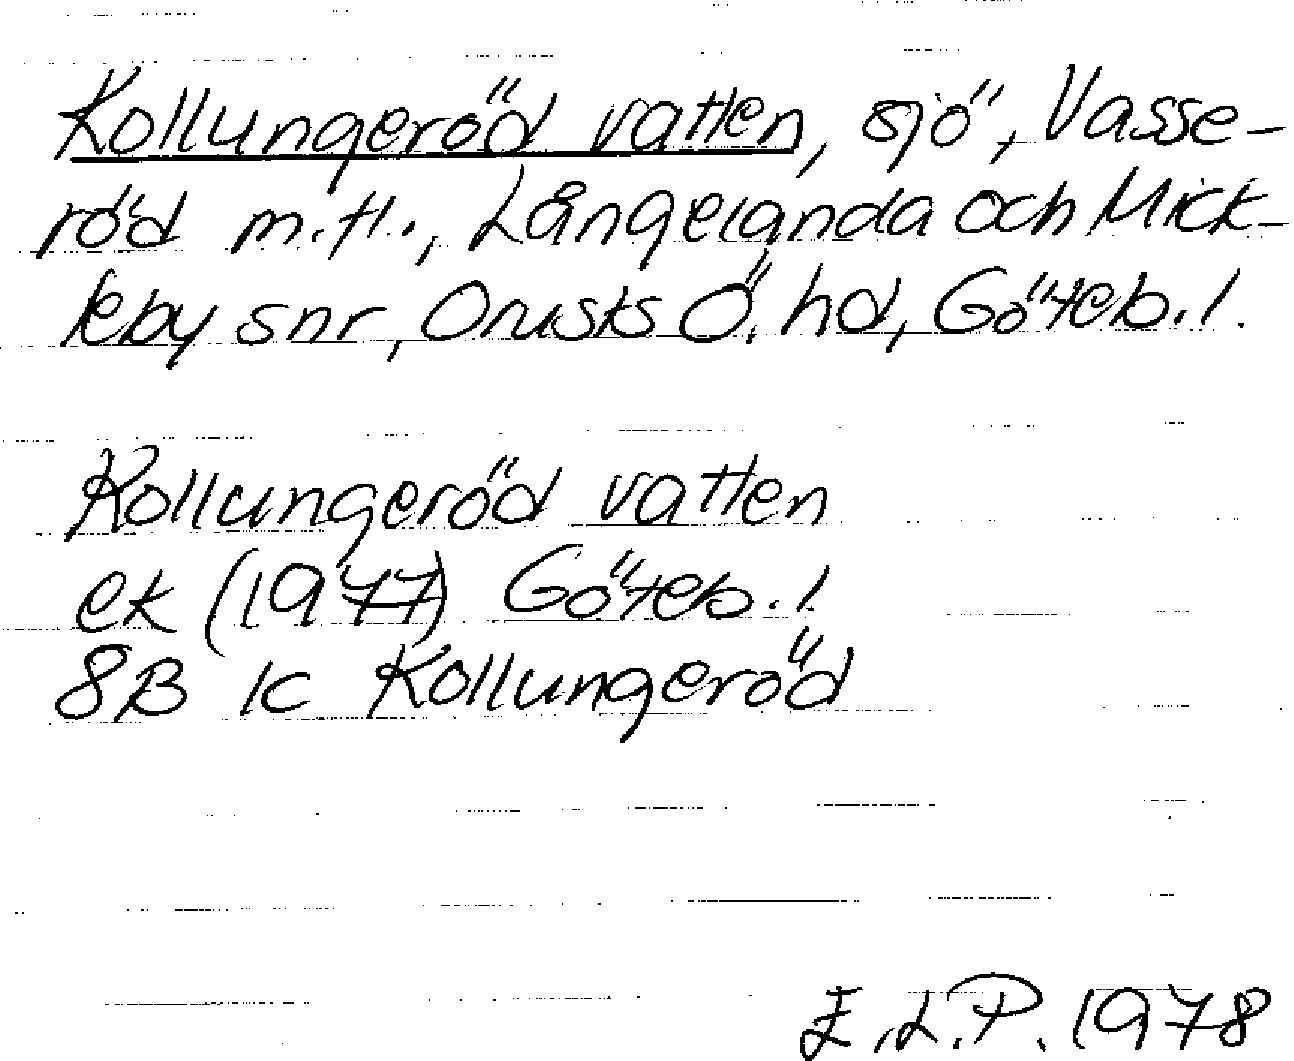 Kollungeröd vatten, sjö, Vasse-
röd m.fl., Långelanda och Mick-
leby snr, Orusts Ö. hd, Göteb.l.
Kollungeröd vatten
ek (1977) Göteb.l.
8B 1c Kollungeröd
E.L.P. 1978